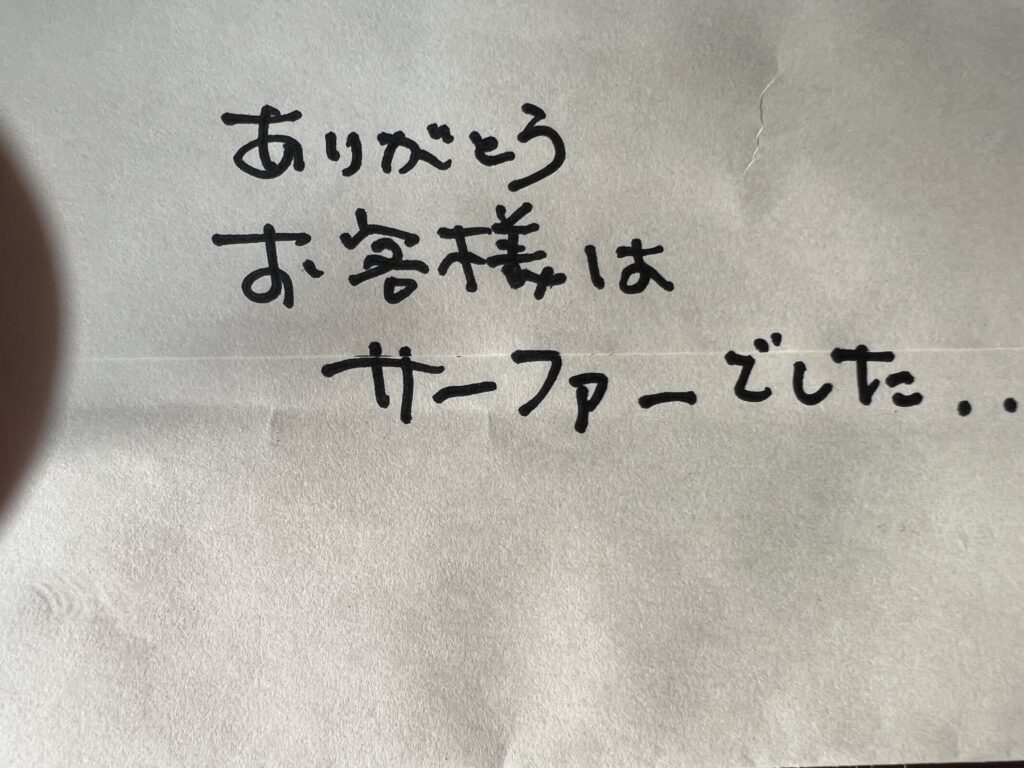 ありがとう
お客様は
サーファーでした..